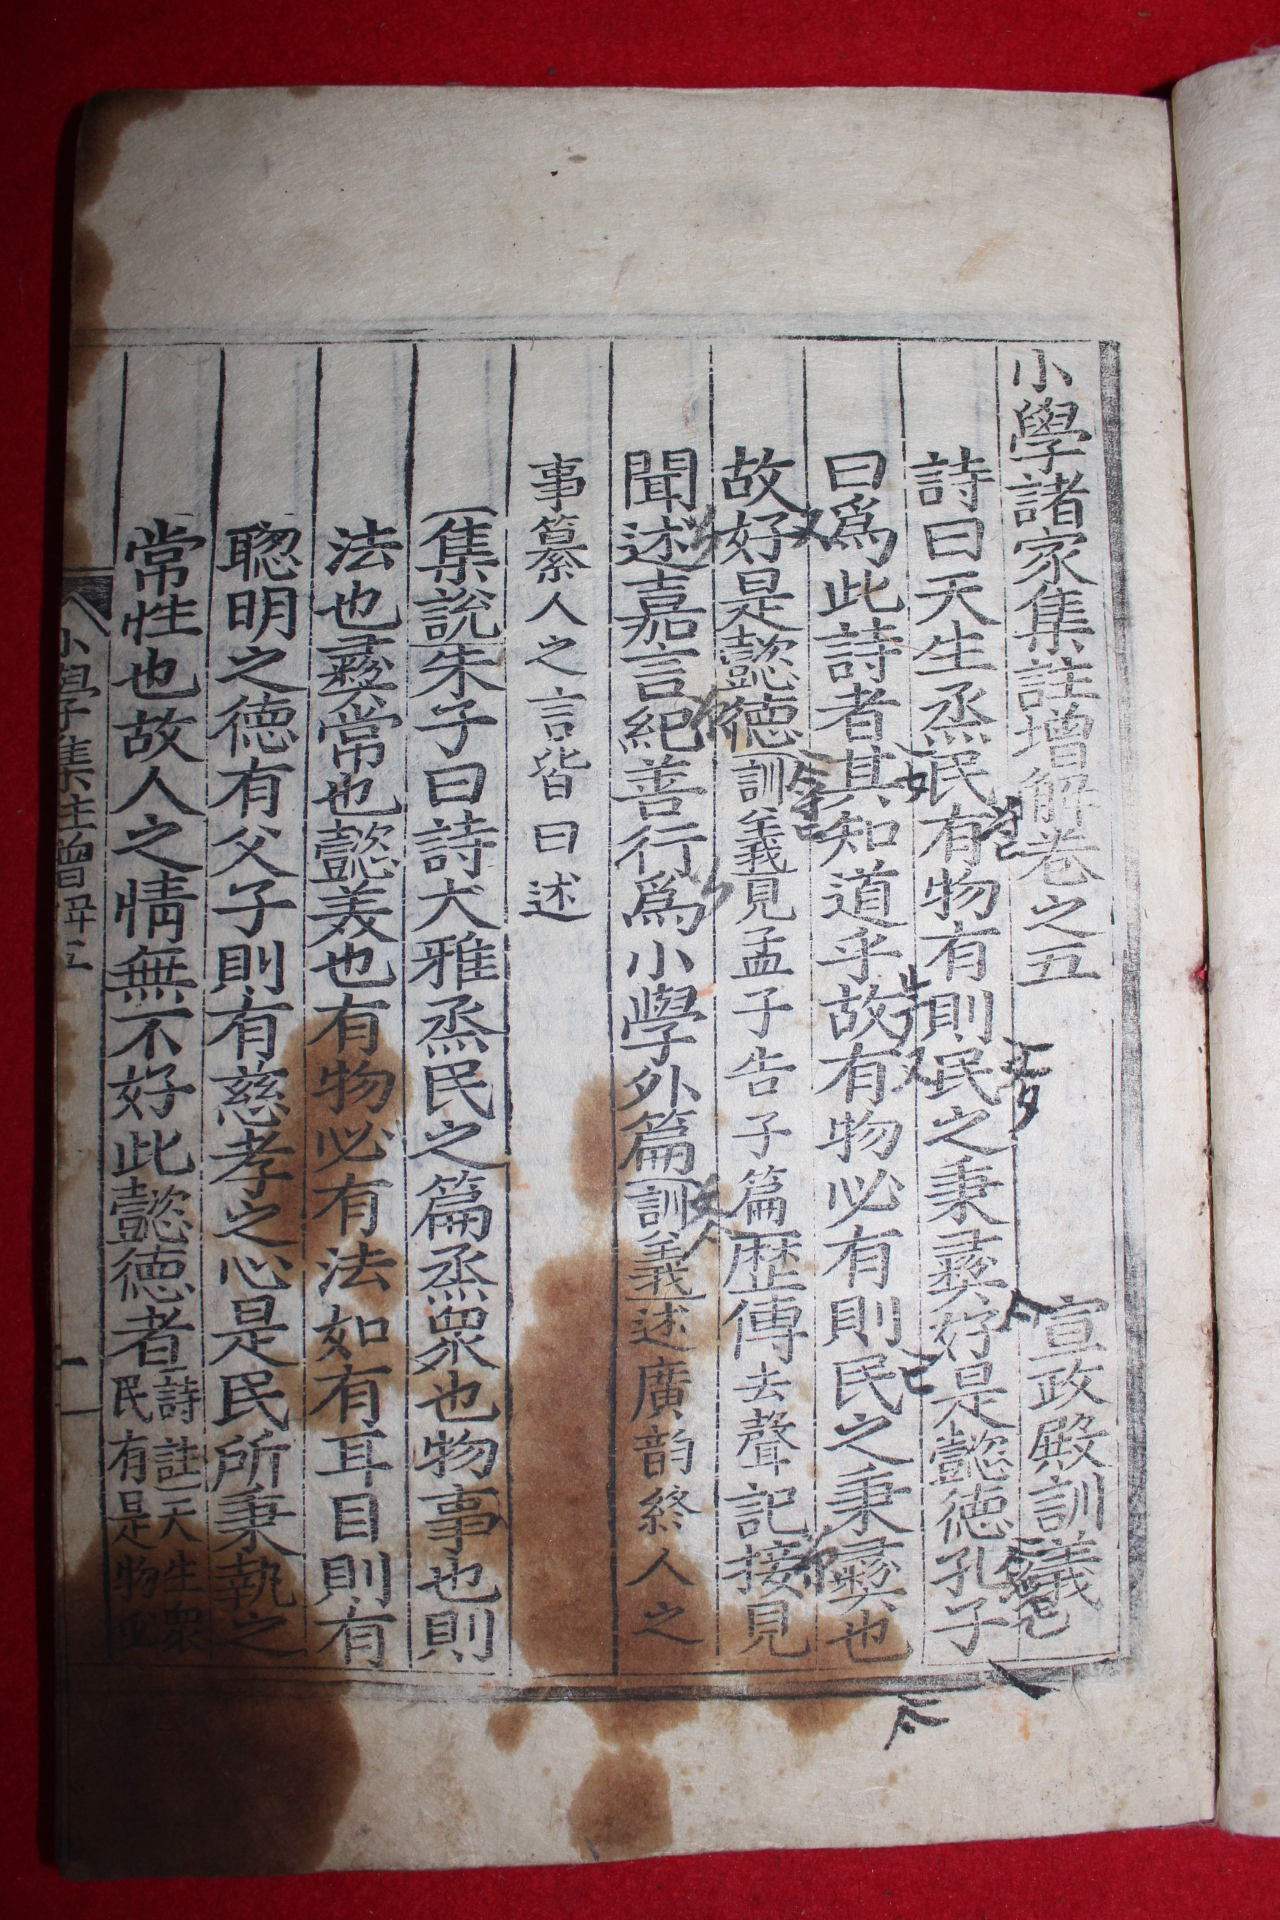 小學諸家集註增解卷之五
宣政殿訓義
詩曰天生烝民有物有則民之秉彝好是懿德孔子
曰爲此詩者其知道乎故有物必有則民之秉彝也
故好是懿德訓義見孟子告子篇歷傳去聲記接見
聞述嘉言紀善行爲小學外篇訓義述廣韵終人之
事纂人之言皆曰述
集說朱子曰詩大雅烝民之篇烝衆也物事也則
法也彝常也懿美也有物必有法如有耳目則有
聰明之德有父子則有慈孝之心是民所秉執之
常性也故人之情無不好此懿德者詩註天生衆
民有是物必
小學集註增解五
一